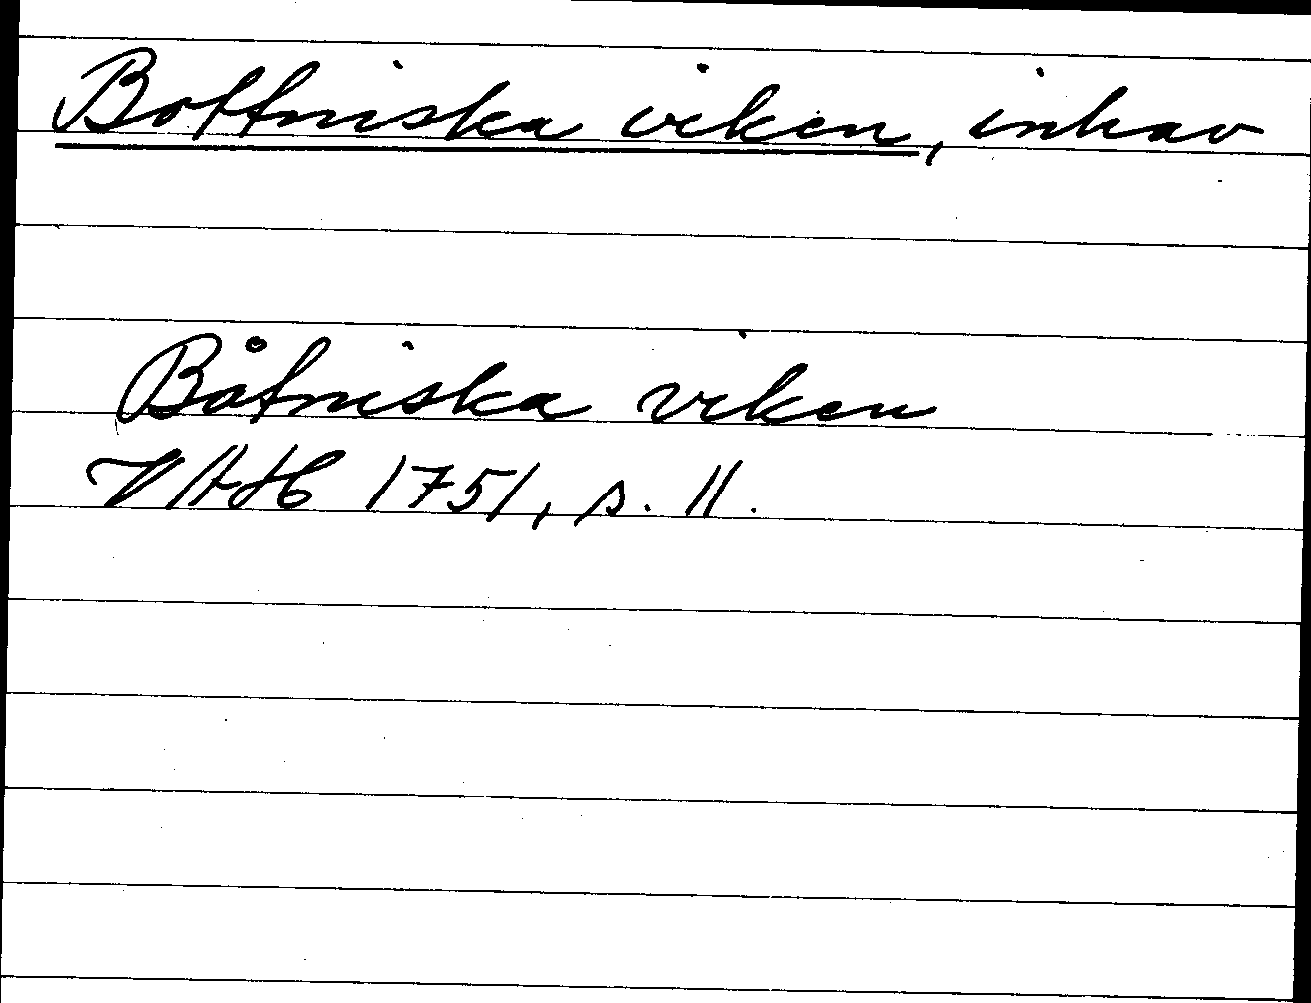 Bottniska viken, inhav
Båtniska viken
VAH 1751, s. 11.